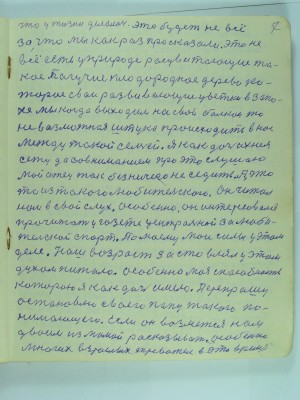 что у жизни делали. Это будет не всё
за что мы как раз просказали. Это не
всё есть у природе расцветающие та-
кое Получие плодородное дерево ко-
торое свои развивающие цветки в запо-
хе мы когда выходим на свой балкон то
не возможная штука происходит в нас
между такой семьёй. Я как дочкина
сету за вниманием про это слушаю
мой отец так без ничего не сидеть. Л это
то из такого любительского. Он читал
нам в свой слух, особенно, он интересовал
прочитать у газете центральной за люби-
тельской спорт. По моему мои силы у этом
деле. Наш возраст заставлял у этом
духом питало. Особенно моя способность
которою я как дочь имею. Перекрашу
остановлю своего папу такого по-
нимающего. Если он возметса нам
двоим из мамой рассказывать, особенно
многих взрослых
в это время